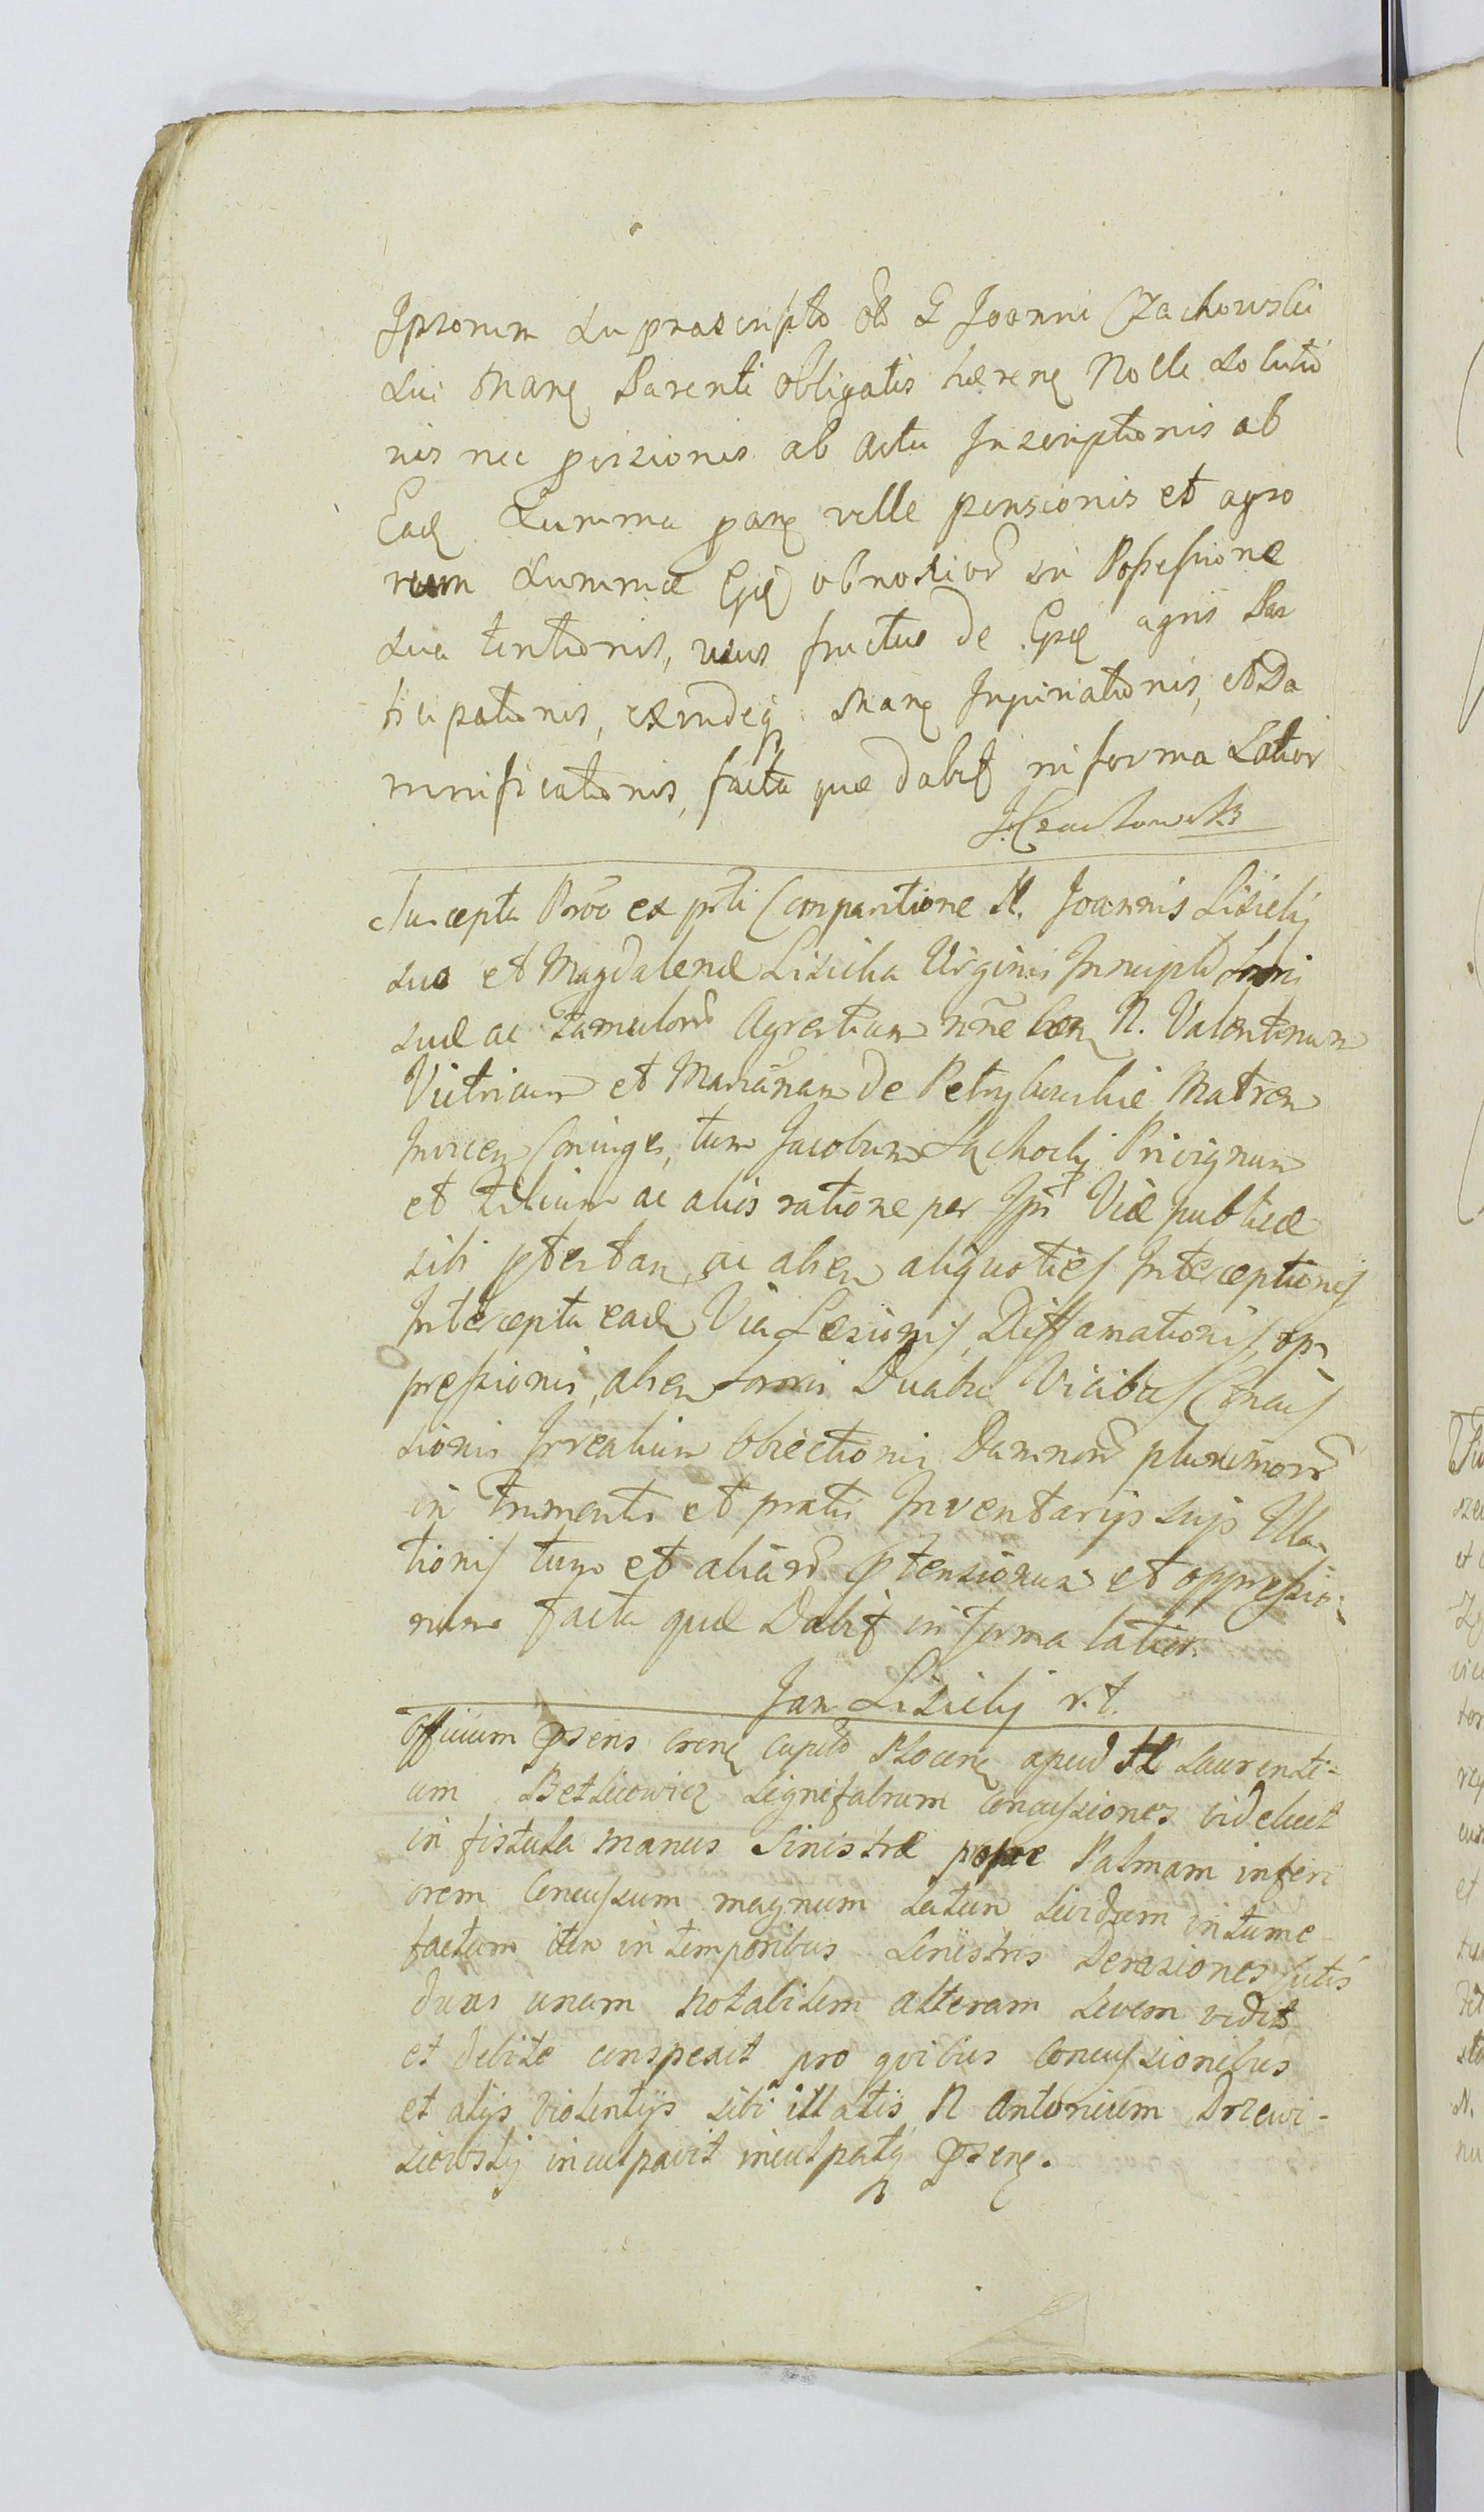 Ipsorum Suprascripto olo G Joanni Czachowski
Sui Manq Parenti obligatis hærenq Nolle Solutio
nis nec provisionis ab actu Inscriptionis ab
Eadq Summa panq velle pensionis et agro
rum Summæ Epdq obnoxior in Possessione
Sua tentionis, usus fructus de Epdq agris Par
ticipationis, exindeq Manq Injuriationis, et Da
mnificationis, facta quæ dabit in forma Latior
J Czachowski
Suscepta Proo ex prti Comparitione N. Joannis Lisicky
suo et Magdalenæ Lisicka Virginis Principlo Sorori
suæ ac Famulorr Agrestium nne Coz N. Valentinum
Vitricum et Mariannam de Petrykowskie Matrem
Invicem Coniuges, tum Jacobum Privignum
et Filium ac alios ratione per Ipst Viæ publicæ
sibi ac alien aliquoties Interceptionis
Intercepta eadz Via Læsionis, Diffamationis, op
pressionis, alien Sorori Duabus Vicibus Concus
sionis Irrealium Obiectionis Damnorr plurimorr
in Frumentis et pratis Inventarijs suis Illa
tionis tum et aliarr Ptensionum et oppressio
num facta quæ Dabit in forma latior.
Jan Lisicky r. t.
Officium Psens Crenq Capitlo Plocenq apud N Laurenti-
um Betlicowicz signifabrum Concussiones videlicet
in fistula manus Sinistræ prope Palmam inferi
orem Concussum magnum Latum Lividum intume
factum iten in temporibus Sinistris Derasiones Cutis
duas unam Notabilem alteram Levem vidit
et debite conspexit pro quibus Concussionibus
et alijs violentijs sibi illatis N Antonium Drzewi-
siewsky inculpavit inculpatq Psenq.